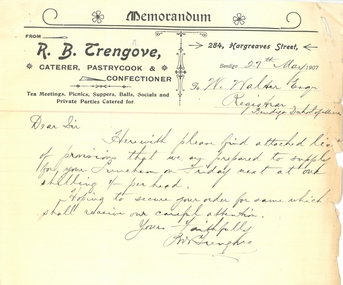 Memorandum
FROM
R. B. Trengove,
CATERER, PASTRYCOOK &
CONFECTIONER
Tea Meetings, Picnics, Suppers, Balls, Socials and
Private Parties Catered for
284, Hargreaves Street,
Bendigo 27th May 1907
To W. Walker Esqr
Registrar
Bendigo School of Mines
Dear Sir
Herewith please find attached list
of provisions that we are prepared to supply
for your Luncheon on Friday next at one
shilling & per head.
Hoping to secure your order for same which
shall receive our careful attention.
Yours Faithfully
R B Trengove